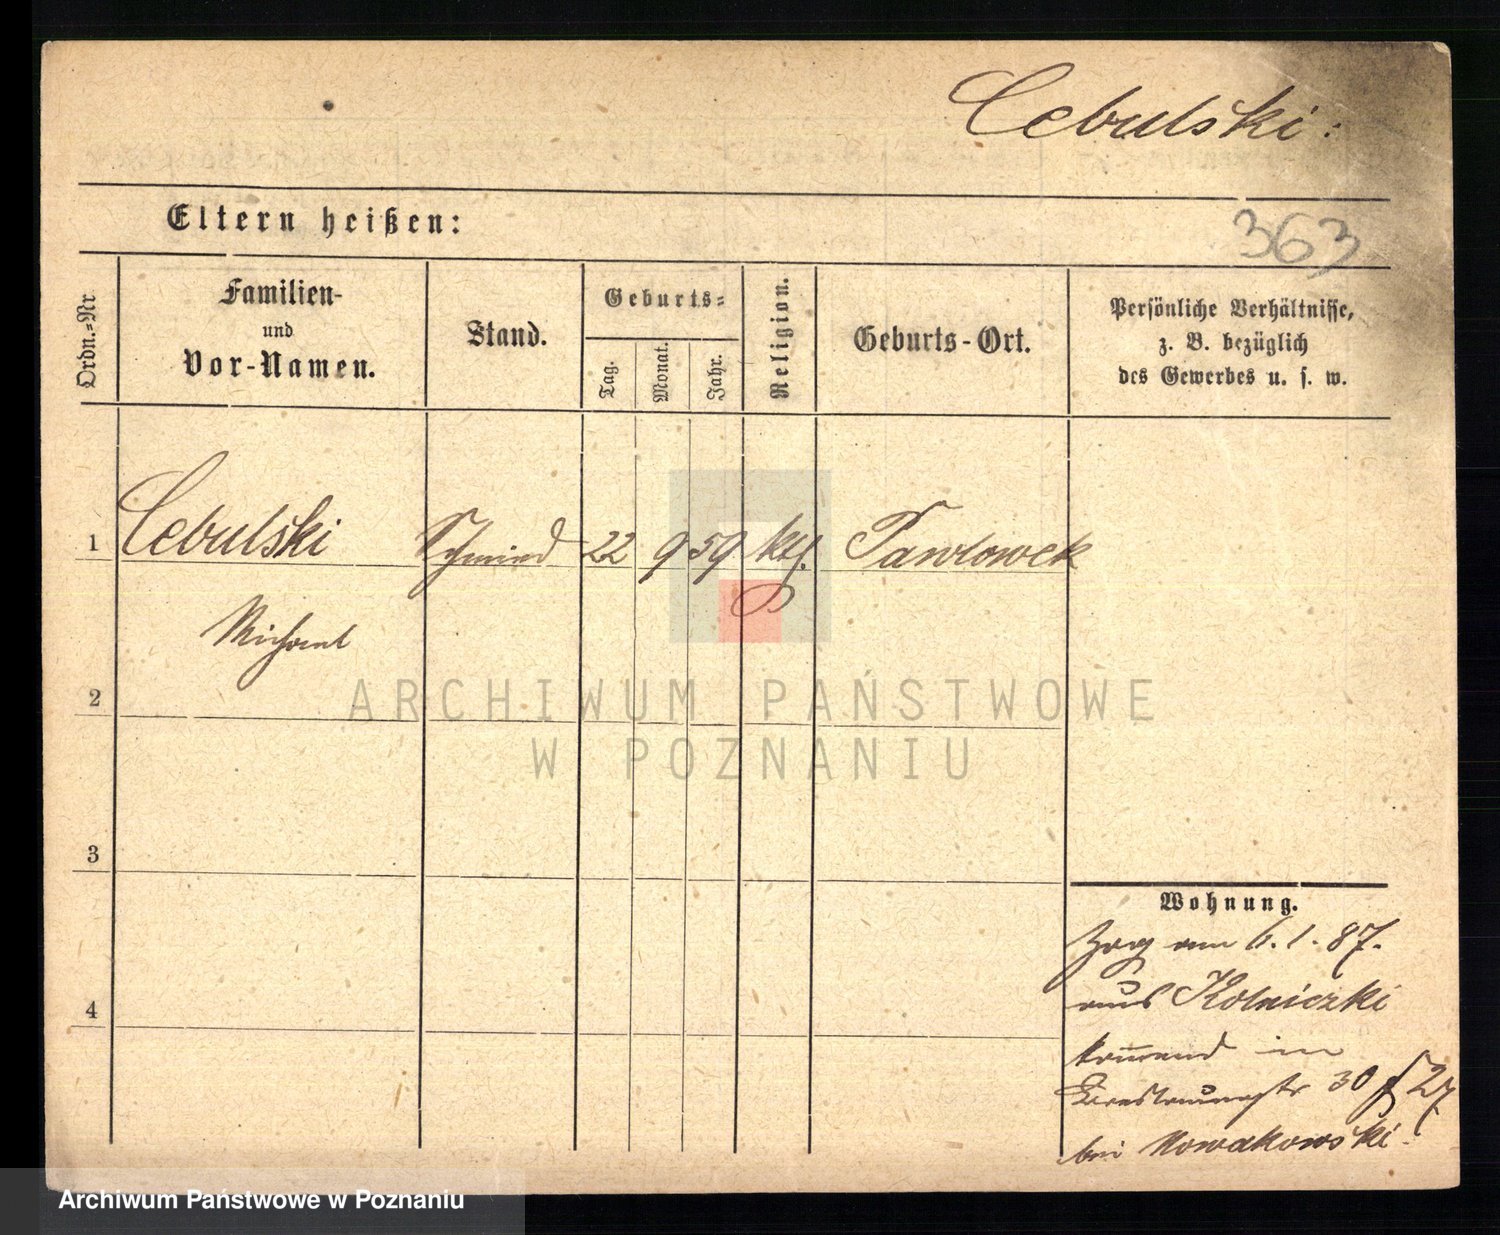 Cebulski:
Eltern heißen:
363
Ordn.=Nr.
Familien-
und
Vor-Namen.
Stand.
Geburts=
Tag.
Monat.
Jahr.
Religion.
Geburts-Ort.
Persönliche Verhältnisse,
z. B. bezüglich
des Gewerbes u. s. w.
1 Cebulski Schmied 22 9 59 kth. Pawlowek
Michael
2
3
4
Wohnung.
Zog am 6.1.87.
aus Kolniczki
kom̅end in
30 27
bei Nowakowski.
ARCHIWUM PAŃSTWOWE
W POZNANIU
Archiwum Państwowe w Poznaniu